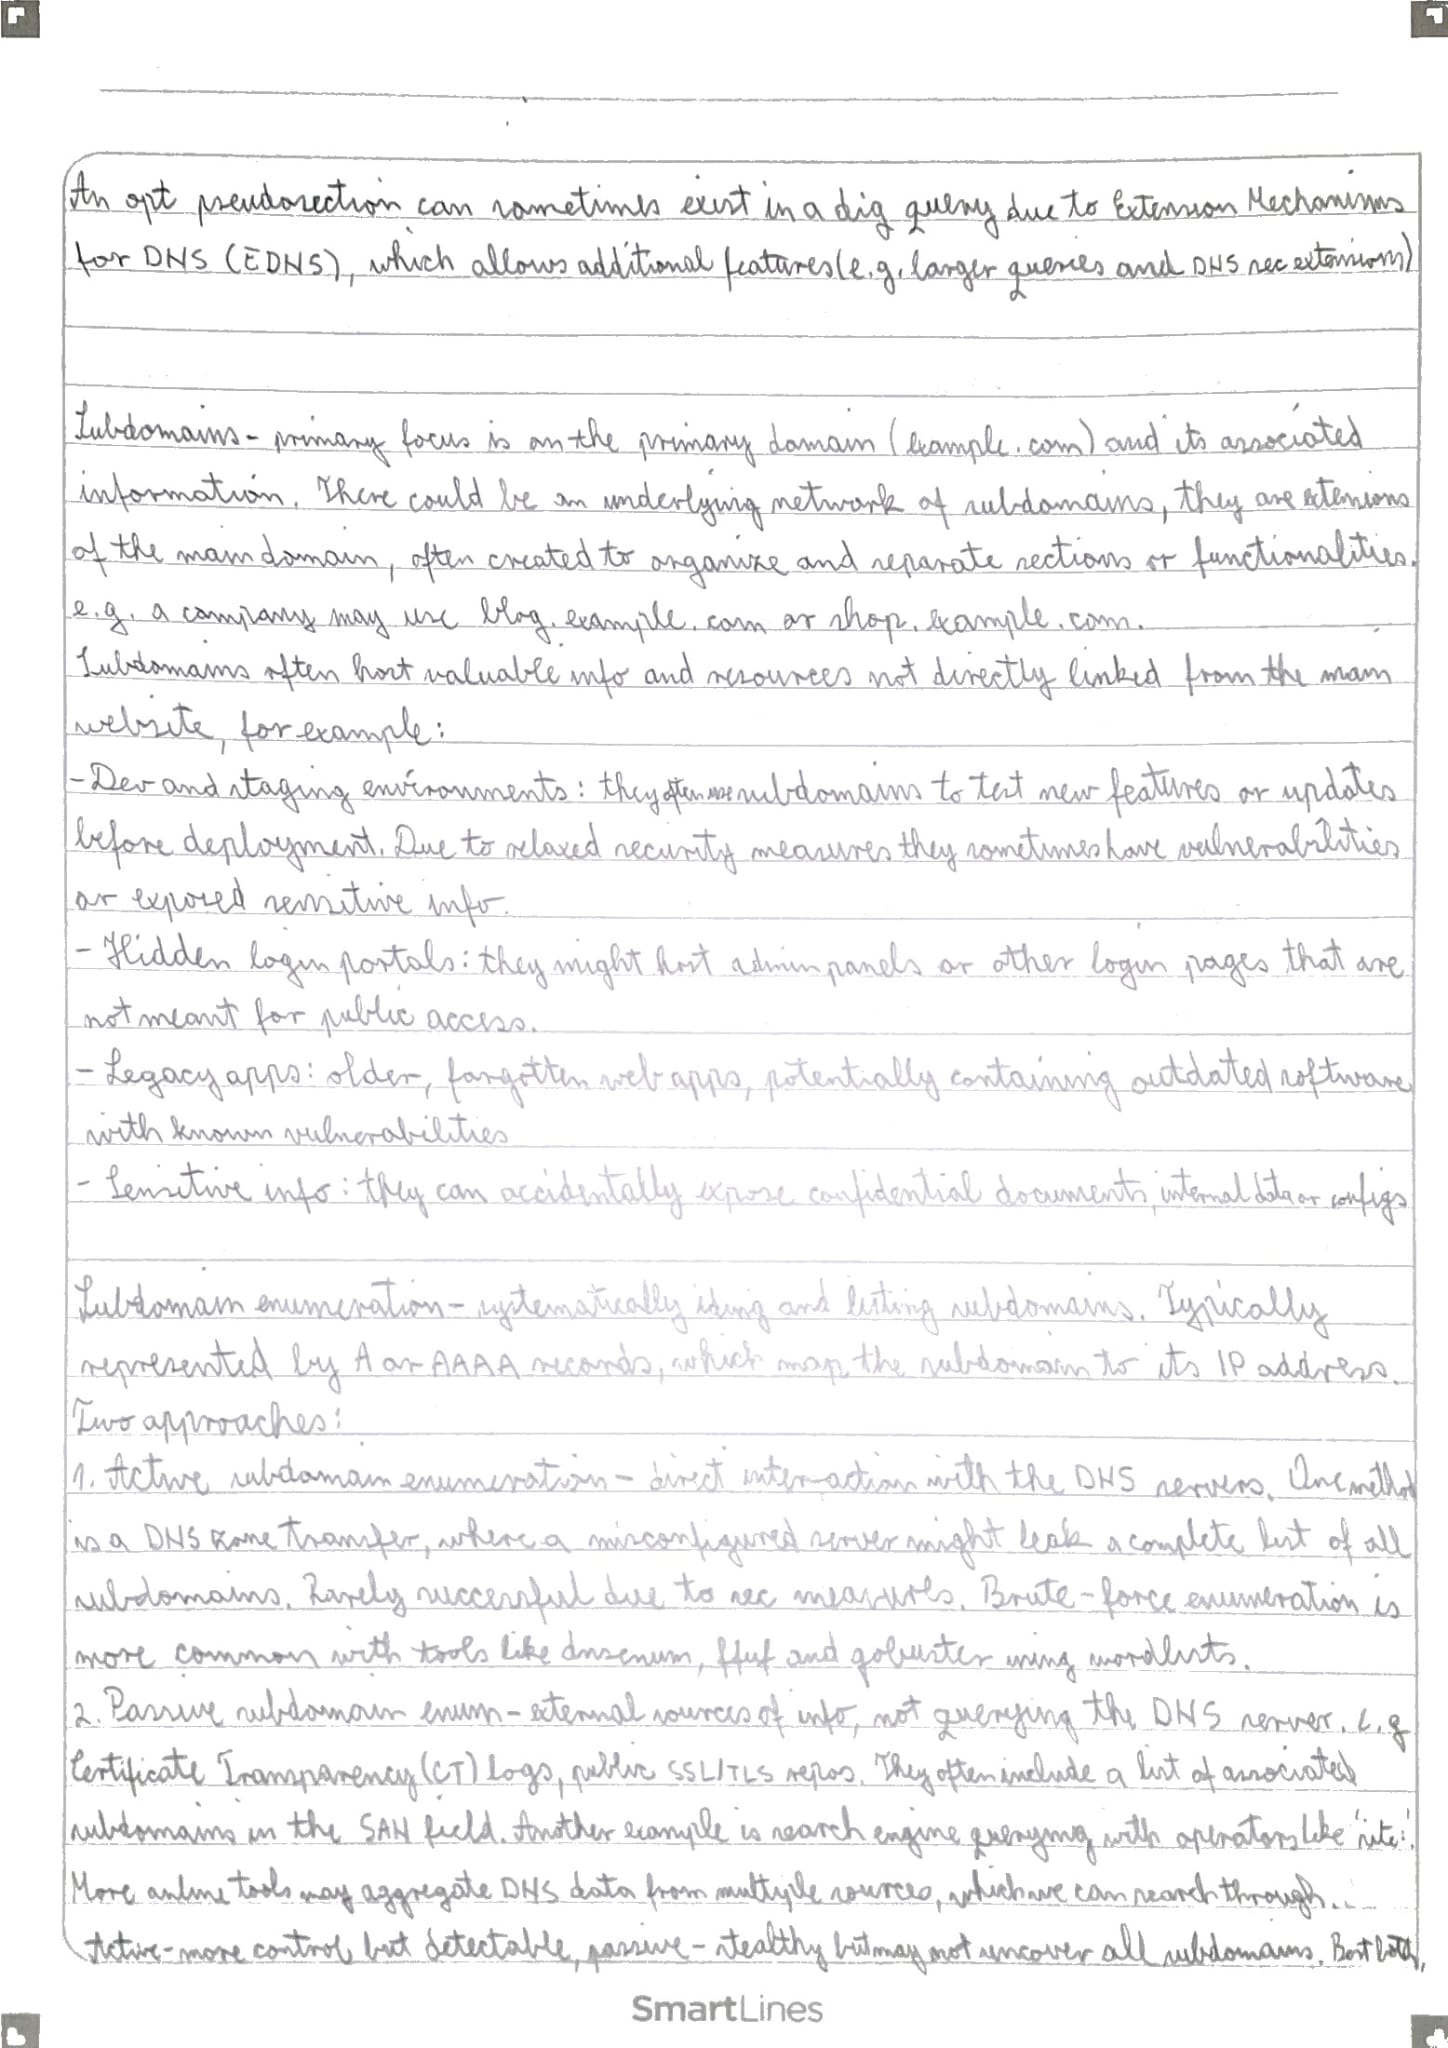 An opt pseudosection can sometimes exist in a dig query due to Extension Mechanisms
for DNS (EDNS), which allows additional features (e.g. larger queries and DNS sec extensions)
Subdomains - primary focus is on the primary domain (example.com) and its associated
information. There could be an underlying network of subdomains, they are extensions
of the main domain, often created to organize and separate sections or functionalities.
e.g. a company may use blog.example.com or shop.example.com.
Subdomains often host valuable info and resources not directly linked from the main
website, for example:
- Dev and staging environments: they often use subdomains to test new features or updates
before deployment. Due to relaxed security measures they sometimes have vulnerabilities
or exposed sensitive info.
- Hidden login portals: they might host admin panels or other login pages that are
not meant for public access.
- Legacy apps: older, forgotten web apps, potentially containing outdated software
with known vulnerabilities
- Sensitive info: they can accidentally expose confidential documents, internal data or configs
Subdomain enumeration - systematically iding and listing subdomains. Typically
represented by A or AAAA records, which map the subdomain to its IP address.
Two approaches:
1. Active subdomain enumeration - direct interaction with the DNS servers. One method
is a DNS zone transfer, where a misconfigured server might leak a complete list of all
subdomains. Rarely successful due to sec measures. Brute-force enumeration is
more common with tools like dnsenum, ffuf and gobuster using wordlists.
2. Passive subdomain enum - external sources of info, not querying the DNS server. e.g
Certificate Transparency (CT) logs, public SSL/TLS repos. They often include a list of associated
subdomains in the SAN field. Another example is search engine querying with operators like 'site:'.
More online tools may aggregate DNS data from multiple sources, which we can search through..
Active - more control but detectable, passive - stealthy but may not uncover all subdomains. Best both.
SmartLines